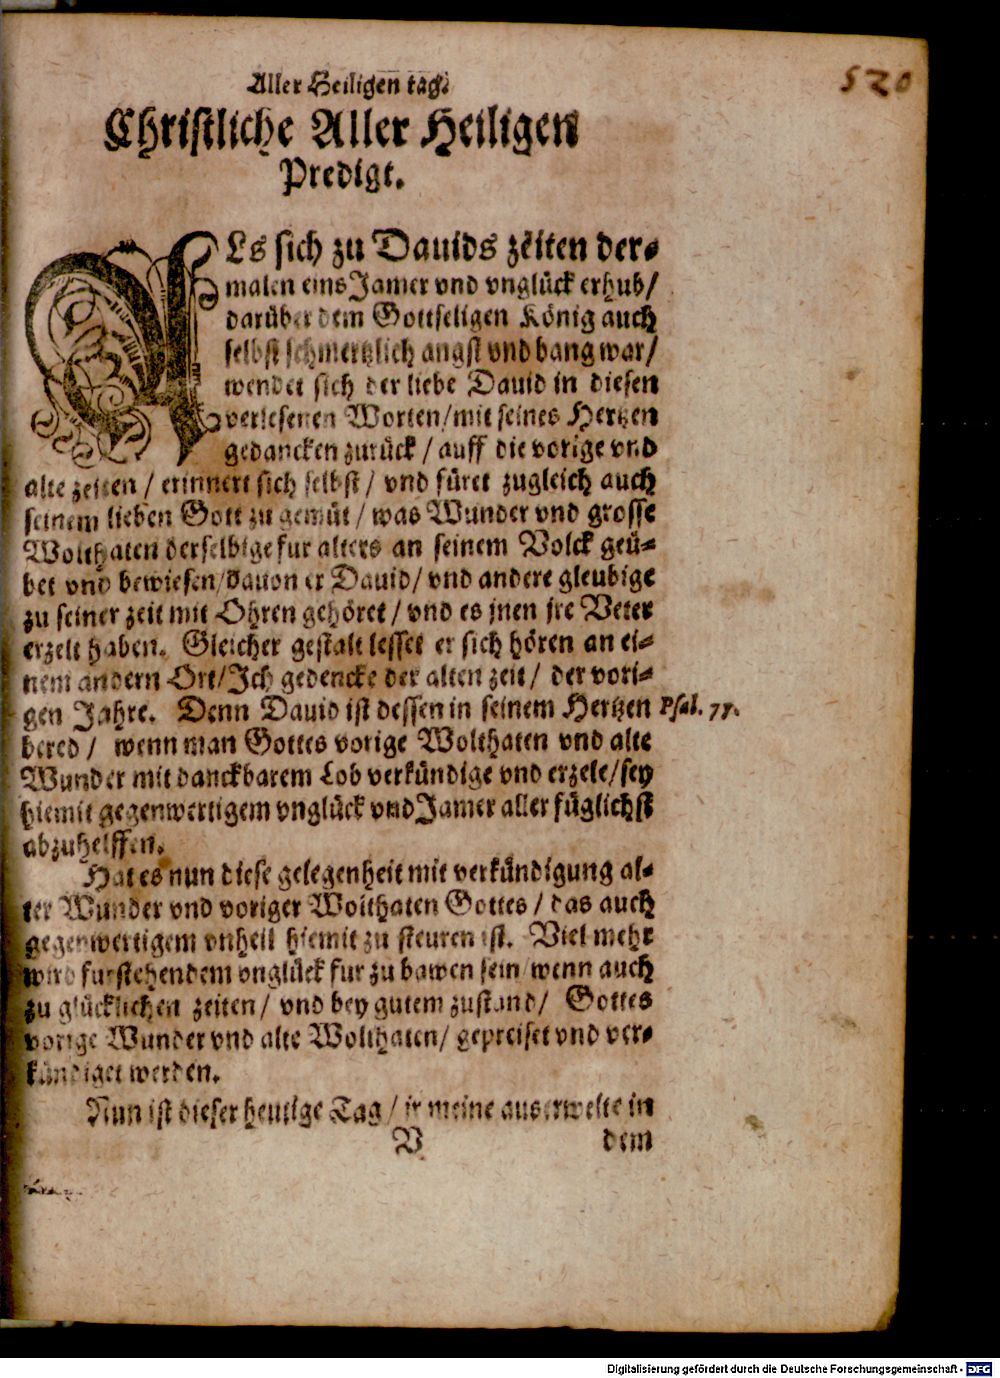 520
Aller Heiligen tag.
Christliche Aller Heiligen
Predigt.
ALs sich zu Dauids zeiten der-
malen eins Jamer vnd vnglück erhub/
darüber dem Gottseligen König auch
selbst schmertzlich angst vnd bang war/
wendet sich der liebe Dauid in diesen
verlesenen Worten/mit seines Hertzen
gedancken zurück / auff die vorige vnd
alte zeiten / erinnert sich selbst / vnd füret zugleich auch
seinem lieben Gott zu gemüt / was Wunder vnd grosse
Wolthaten derselbige fur alters an seinem Volck geü-
bet vnd bewiesen/dauon er Dauid/ vnd andere gleubige
zu seiner zeit mit Ohren gehöret / vnd es jnen jre Veter
erzelt haben. Gleicher gestalt lesset er sich hören an ei-
nem andern Ort/Ich gedencke der alten zeit / der vori-
gen Jahre. Denn Dauid ist dessen in seinem Hertzen Psal. 77.
bered / wenn man Gottes vorige Wolthaten vnd alte
Wunder mit danckbarem Lob verkündige vnd erzele/sey
hiemit gegenwertigem vnglück vnd Jamer aller füglichst
abzuhelffen.
Hat es nun diese gelegenheit mit verkündigung al-
ter Wunder vnd voriger Wolthaten Gottes / das auch
gegenwertigem vnheil hiemit zu steuren ist. Viel mehr
wird furstehendem vnglück fur zu bawen sein wenn auch
zu glücklichen zeiten / vnd bey gutem zustand / Gottes
vorige Wunder vnd alte Wolthaten/ gepreiset vnd ver-
kündiget werden.
Nun ist dieser heutige Tag / jr meine auserwelte in
V dem
Digitalisierung gefördert durch die Deutsche Forschungsgemeinschaft - DFG